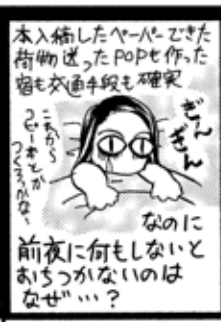 本入稿したペーパーできた
荷物送ったPOPも作った
宿も交通手段も確実
ぎん
ぎん
これから
コピー本とか
つくろっかな~
なのに
前夜に何もしないと
おちつかないのは
なぜ…?